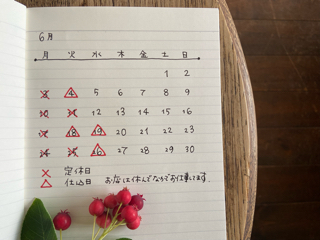 6月
月 火 水 木 金 土 日
1 2
3 4 5 6 7 8 9
10 11 12 13 14 15 16
17 18 19 20 21 22 23
24 25 26 27 28 29 30
× 定休日
△ 仕込日 お店は休んでなかでお仕事してます。